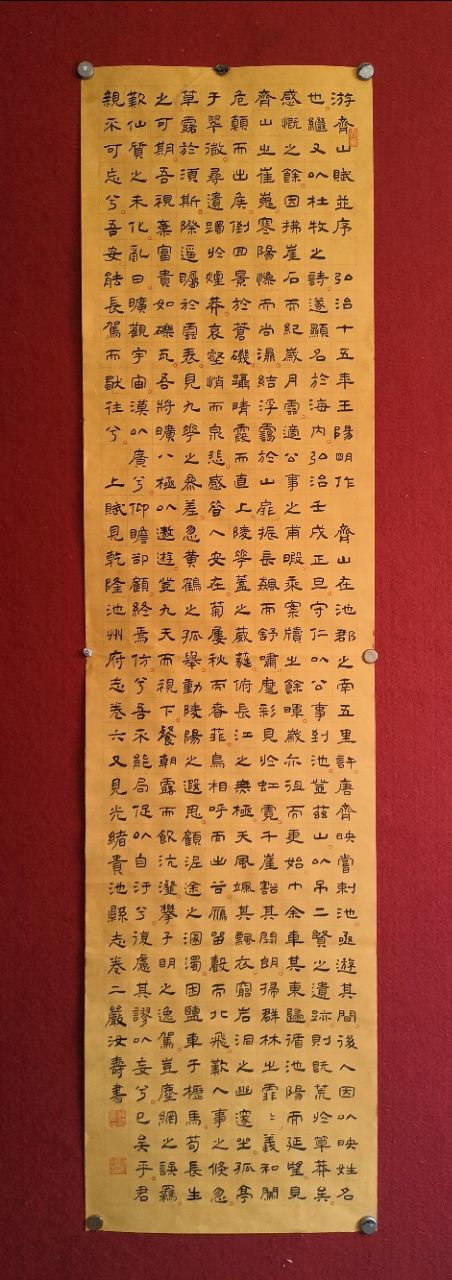 游齊山賦並序 弘治十五年王陽明作 齊山在池郡之南五里許唐齊映嘗刺池亟遊其間後人因以映姓名
也繼又以杜牧之詩遂顯名於海内弘治壬戌正旦守仁以公事到池登茲山以吊二賢之遺跡則既荒於草莽矣
感慨之餘因拂崖石而紀歲月雲適公事之甫暇乘案牘之餘暉歲亦徂而更始巾余車其東歸循池陽而延望見
齊山之崔嵬寒陽慘而尚濕結浮靄於山扉振長飆而舒嘯麾彩見於虹霓千崖豁其開朗掃群林之霏〻羲和闖
危巔而出候倒回景於蒼磯躡晴霞而直上陵華蓋之葳蕤俯長江之無極天風颯其飄衣窮岩洞之幽邃坐孤亭
于翠微尋遺躅於煙莽哀壑悄而泉悲感昔人安在菊屢秋而春菲鳥相呼而出谷雁留聲而北飛歎人事之倏忽
草露於須斯際遥矚於雲表見九華之參差忽黃鶴之孤舉動陵陽之遐思顧泥塗之溷濁困鹽車于櫪馬苟長生
之可期吾視棄富貴如礫瓦吾將曠八極以遨遊登九天而視下餐朝露而飲沆瀣攀子明之逸駕豈塵網之誤羈
歎仙質之未化亂曰曠觀宇宙漠以廣兮仰瞻卻顧終焉仿兮吾不能局促以自汙兮復慮其謬以妄兮已矣乎君
親不可忘兮吾安能長駕而獨往兮 上賦見乾隆池州府志卷六又見光緒貴池縣志卷二嚴汝壽書